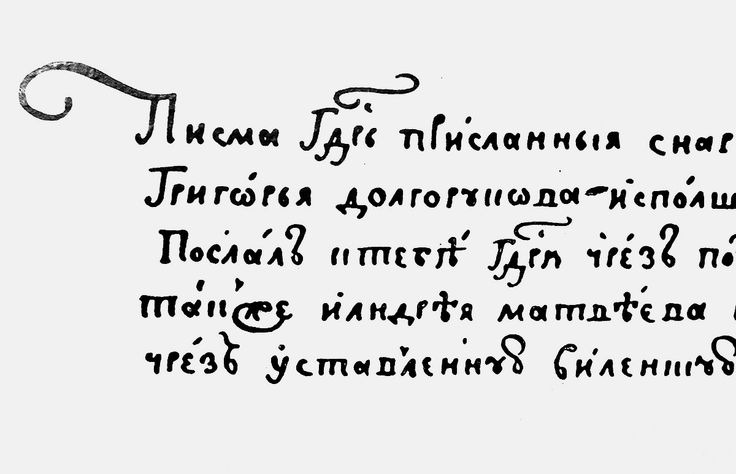 Писма Гдрь присланныя снар
Григѡрья долгорꙋкѡва-испо́лш
Посла́лъ ктебѣ́ Гдрь чрез̾ по
та́кже илндрѣя матвѣева
чре́зъ ꙋставленнꙋю виленшꙋю